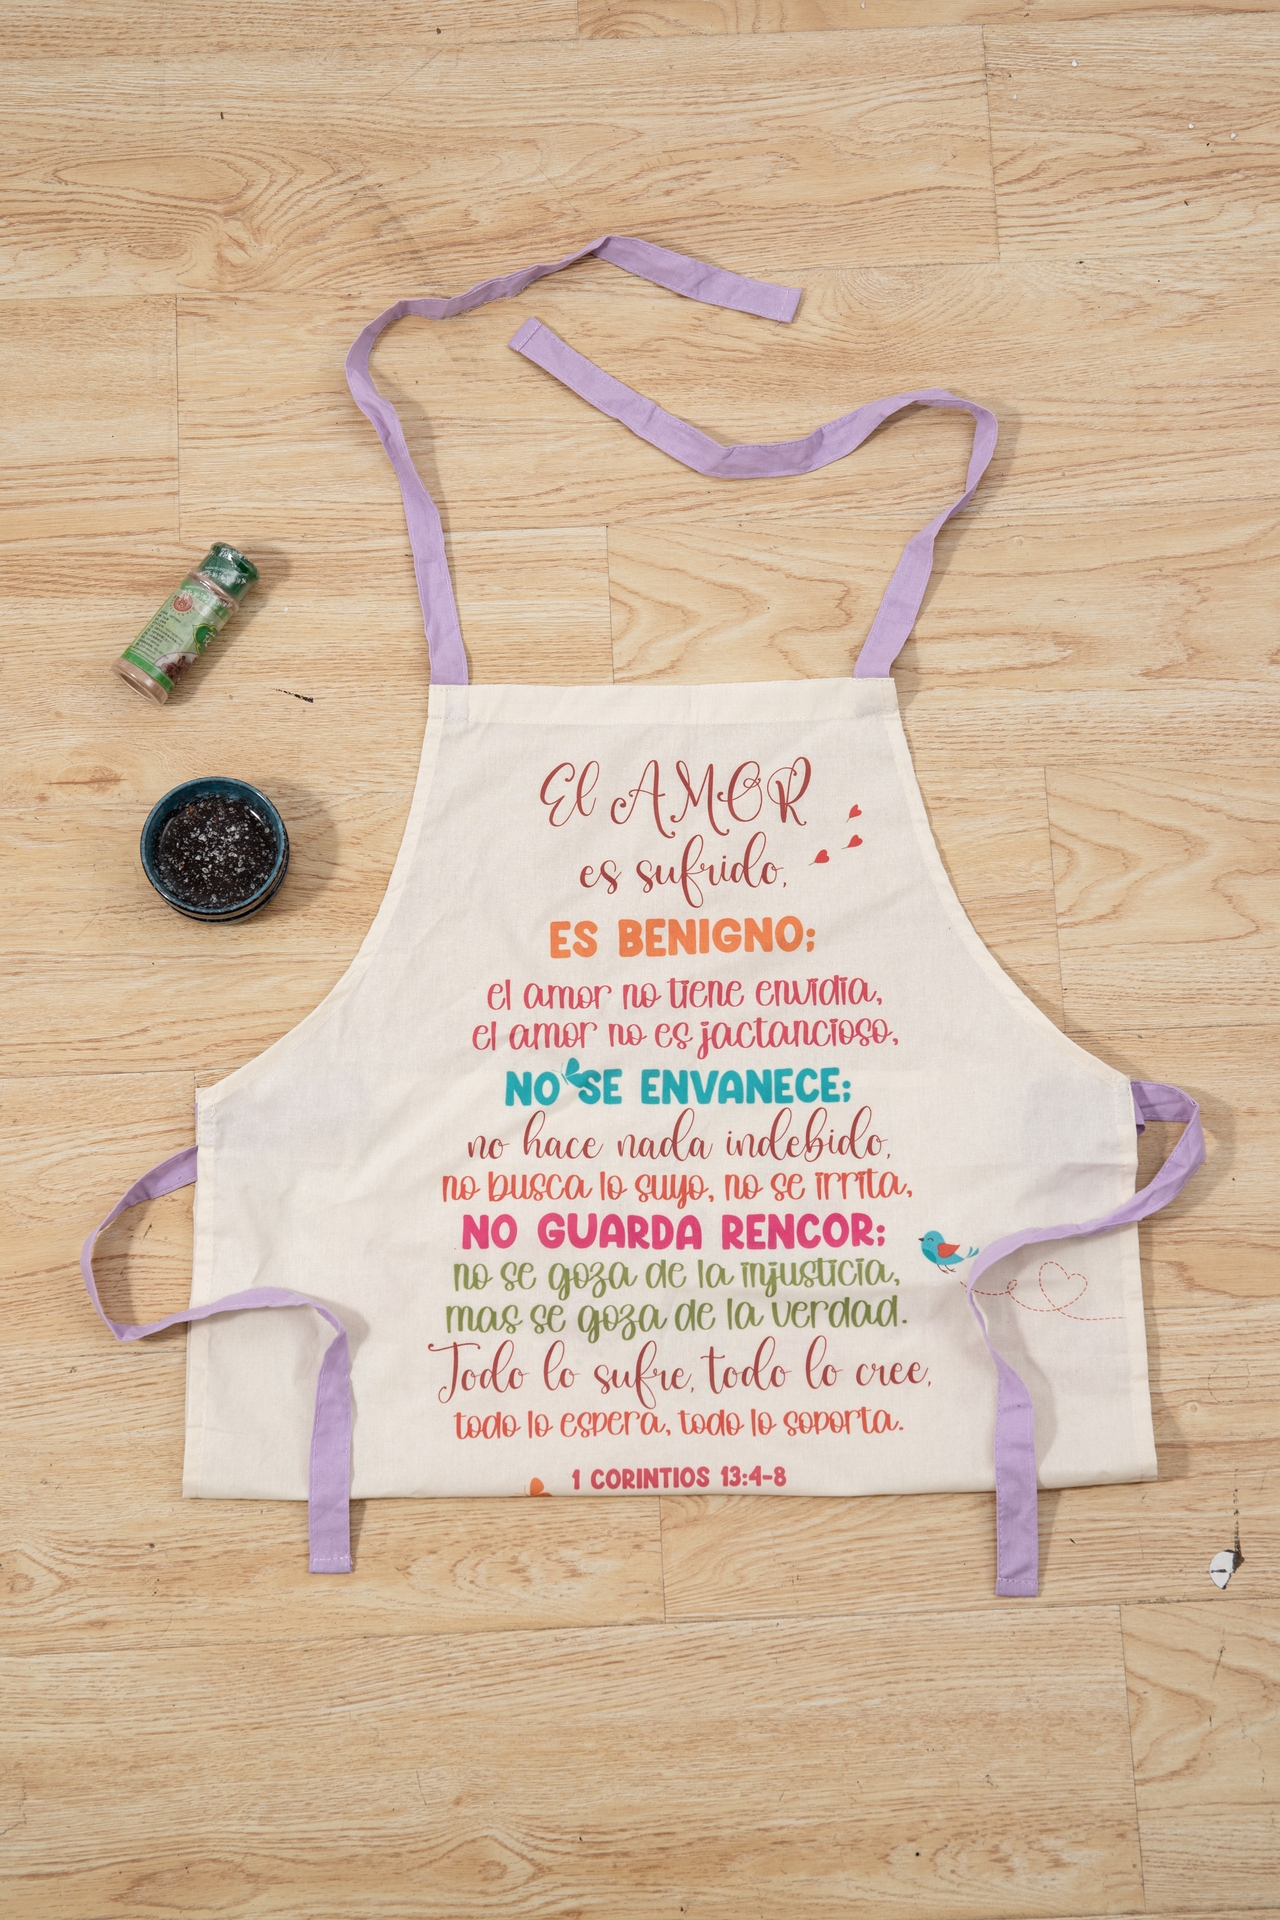 El AMOR
es sufrido,
ES BENIGNO;
el amor no tiene envidia,
el amor no es jactancioso,
NO SE ENVANECE;
no hace nada indebido,
no busca lo suyo, no se irrita,
NO GUARDA RENCOR;
no se goza de la injusticia,
mas se goza de la verdad.
Todo lo sufre, todo lo cree,
todo lo espera, todo lo soporta.
1 CORINTIOS 13:4-8